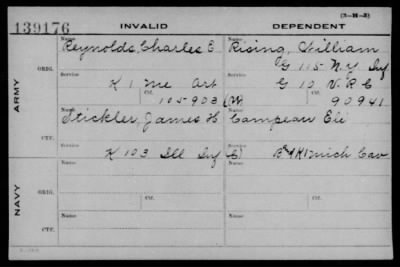 (3-H-2)
139176 INVALID DEPENDENT
Name Name
Reynolds, Charles E Rising, William
ARMY
ORIG. G 115 N.Y. Inf
Service Service
K 1 Me Art G 10 V R C
Ctf. Ctf.
105903 (W) 90941
Name Name
Stickler, James H Campeau Eli
Service Service
CTF. K 103 Ill Inf C) K Mich Cav
NAVY
Name Name
ORIG.
Service Ctf. Service Ctf.
Name Name
CTF.
Service Service